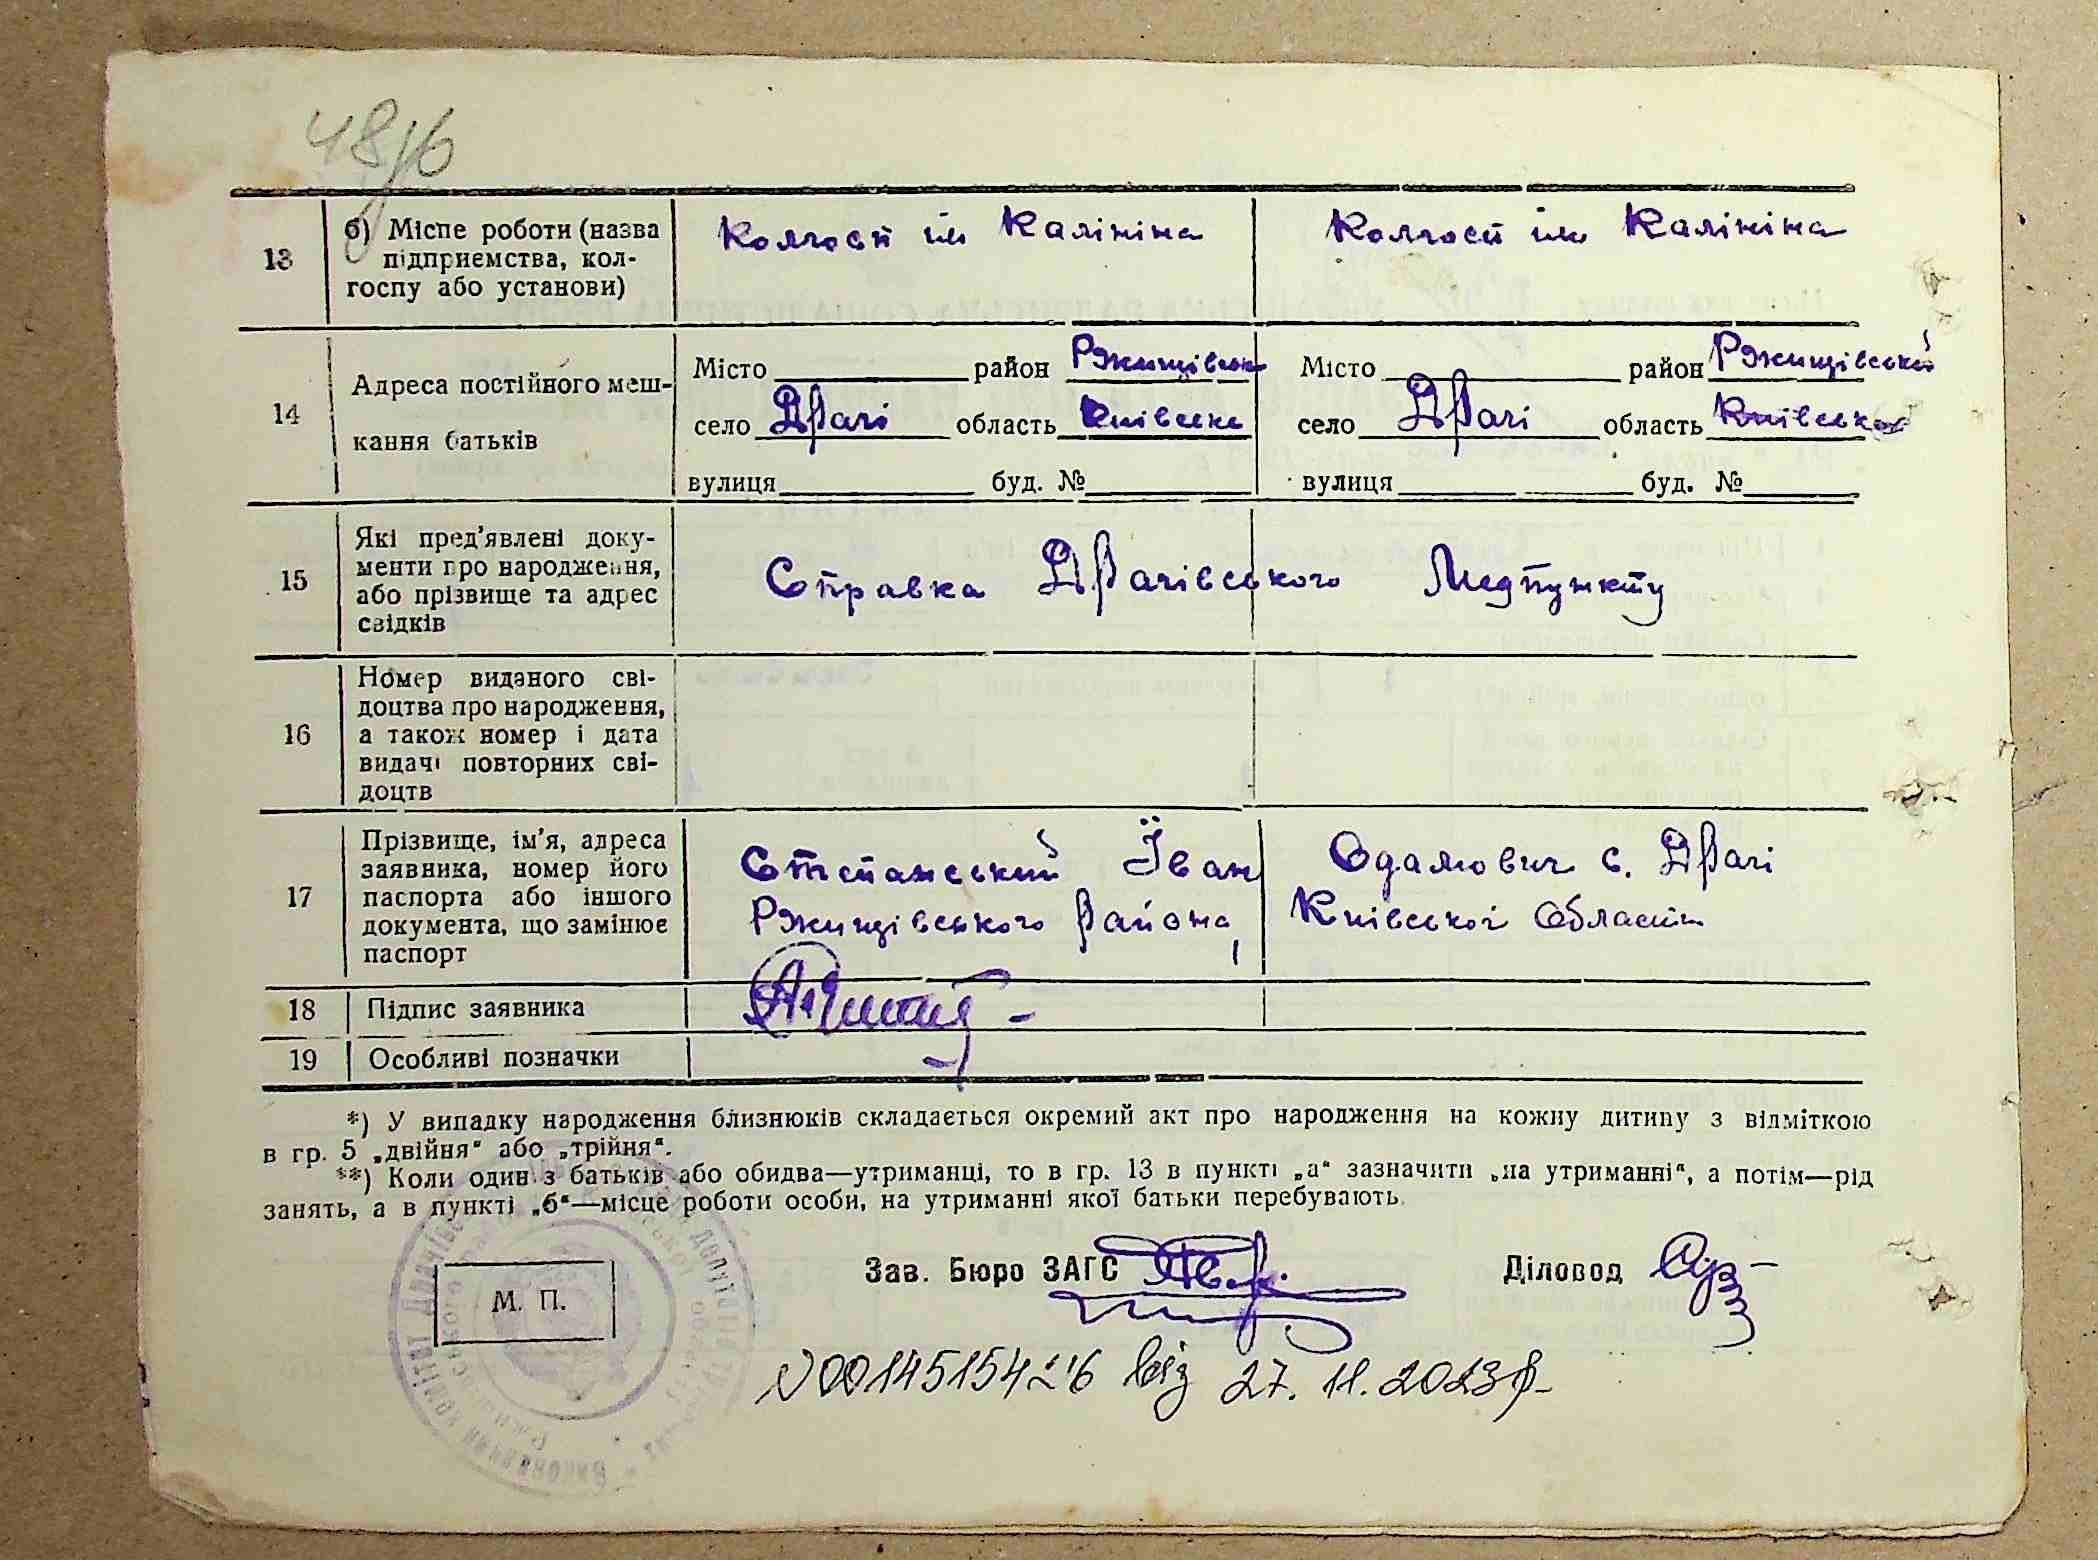 48
13
б) Місце роботи (назва
підприємства, кол-
госпу або установи)
Колгосп ім Калініна
Колгосп ім Калініна
14
Адреса постійного меш-
кання батьків
Місто район Ржищівськ
село Драчі область Київська
вулиця буд. №
Місто район Ржищівський
село Драчі область Київська
вулиця буд. №
15
Які пред'явлені доку-
менти про народження,
або прізвище та адрес
свідків
Справка Драчівського Медпункту
16
Номер виданого сві-
доцтва про народження,
а також номер і дата
видачі повторних сві-
доцтв
17
Прізвище, ім'я, адреса
заявника, номер його
паспорта або іншого
документа, що замінює
паспорт
Степанський Їван Одамович с. Драчі
Ржищівського района, Київської области
18 Підпис заявника
19 Особливі позначки
*) У випадку народження близнюків складається окремий акт про народження на кожну дитину з відміткою
в гр. 5 „двійня“ або „трійня“.
**) Коли один з батьків або обидва—утриманці, то в гр. 13 в пункті „а“ зазначити „на утриманні“, а потім—рід
занять, а в пункті „б“—місце роботи особи, на утриманні якої батьки перебувають.
Зав. Бюро ЗАГС
Діловод
М. П.
Виконавчий комітет Драчівс
від 27.11.2023р